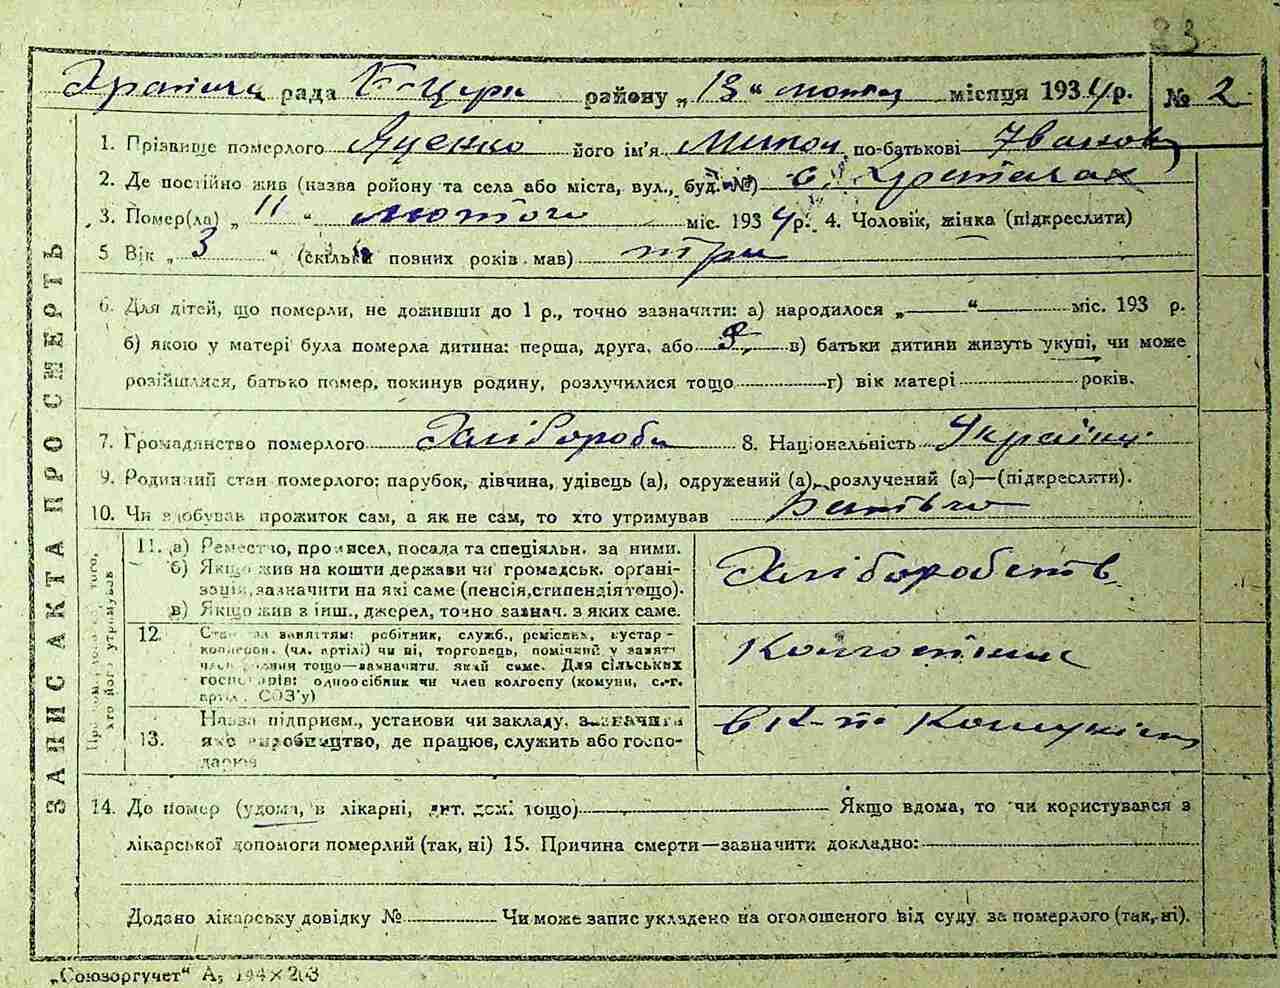 23
Храпача рада Б-Церк району „13" лютого місяця 1934 р. № 2
1. Прізвище померлого Яценко його ім'я по-батькові Іванов
2. Де постійно жив (назва ройону та села або міста, вул., буд. №) с. Храпачах
3. Помер(ла) „11" лютого міс. 1934 р. 4. Чоловік, жінка (підкреслити)
5 Вік „3" (скільки повних років мав) три
6. Для дітей, що померли, не доживши до 1 р., точно зазначити: а) народилося „—" міс. 193 р.
б) якою у матері була померла дитина: перша, друга, або 3 в) батьки дитини живуть укупі, чи може
розійшлися, батько помер, покинув родину, розлучилися тощо г) вік матері років.
7. Громадянство померлого Хлібороби 8. Національність Україн.
9. Родинний стан померлого: парубок, дівчина, удівець (а), одружений (а), розлучений (а)—(підкреслити).
10. Чи здобував прожиток сам, а як не сам, то хто утримував Батько
11. а) Ремество, промисел, посада та спеціяльн. за ними.
б) Якщо жив на кошти держави чи громадськ. органі-
зацій, зазначити на які саме (пенсія, стипендія тощо).
в) Якщо жив з інш., джерел, точно зазнач. з яких саме.
Хліборобств
12. Стан за заняттям: робітник, служб., ремісник, кустар-
кооперов. (чл. артілі) чи ні, торговець, помічний у занят.
член родини тощо—зазначити, який саме. Для сільських
господарів: одноосібник чи член колгоспу (комуни, с.-г.
артіл., СОЗ'у)
Колгоспник
13. Назва підприєм., установи чи закладу, зазначити
яке виробництво, де працює, служить або госпо-
дарює
в к-пі
14. Де помер (удома, в лікарні, дит. домі тощо) Якщо вдома, то чи користувався з
лікарської допомоги померлий (так, ні) 15. Причина смерти—зазначити докладно:
Додано лікарську довідку № Чи може запис укладено на оголошеного від суду за померлого (так, ні).
ЗАПИС АКТА ПРО СМЕРТЬ
„Союзоргучет" А5 194×203